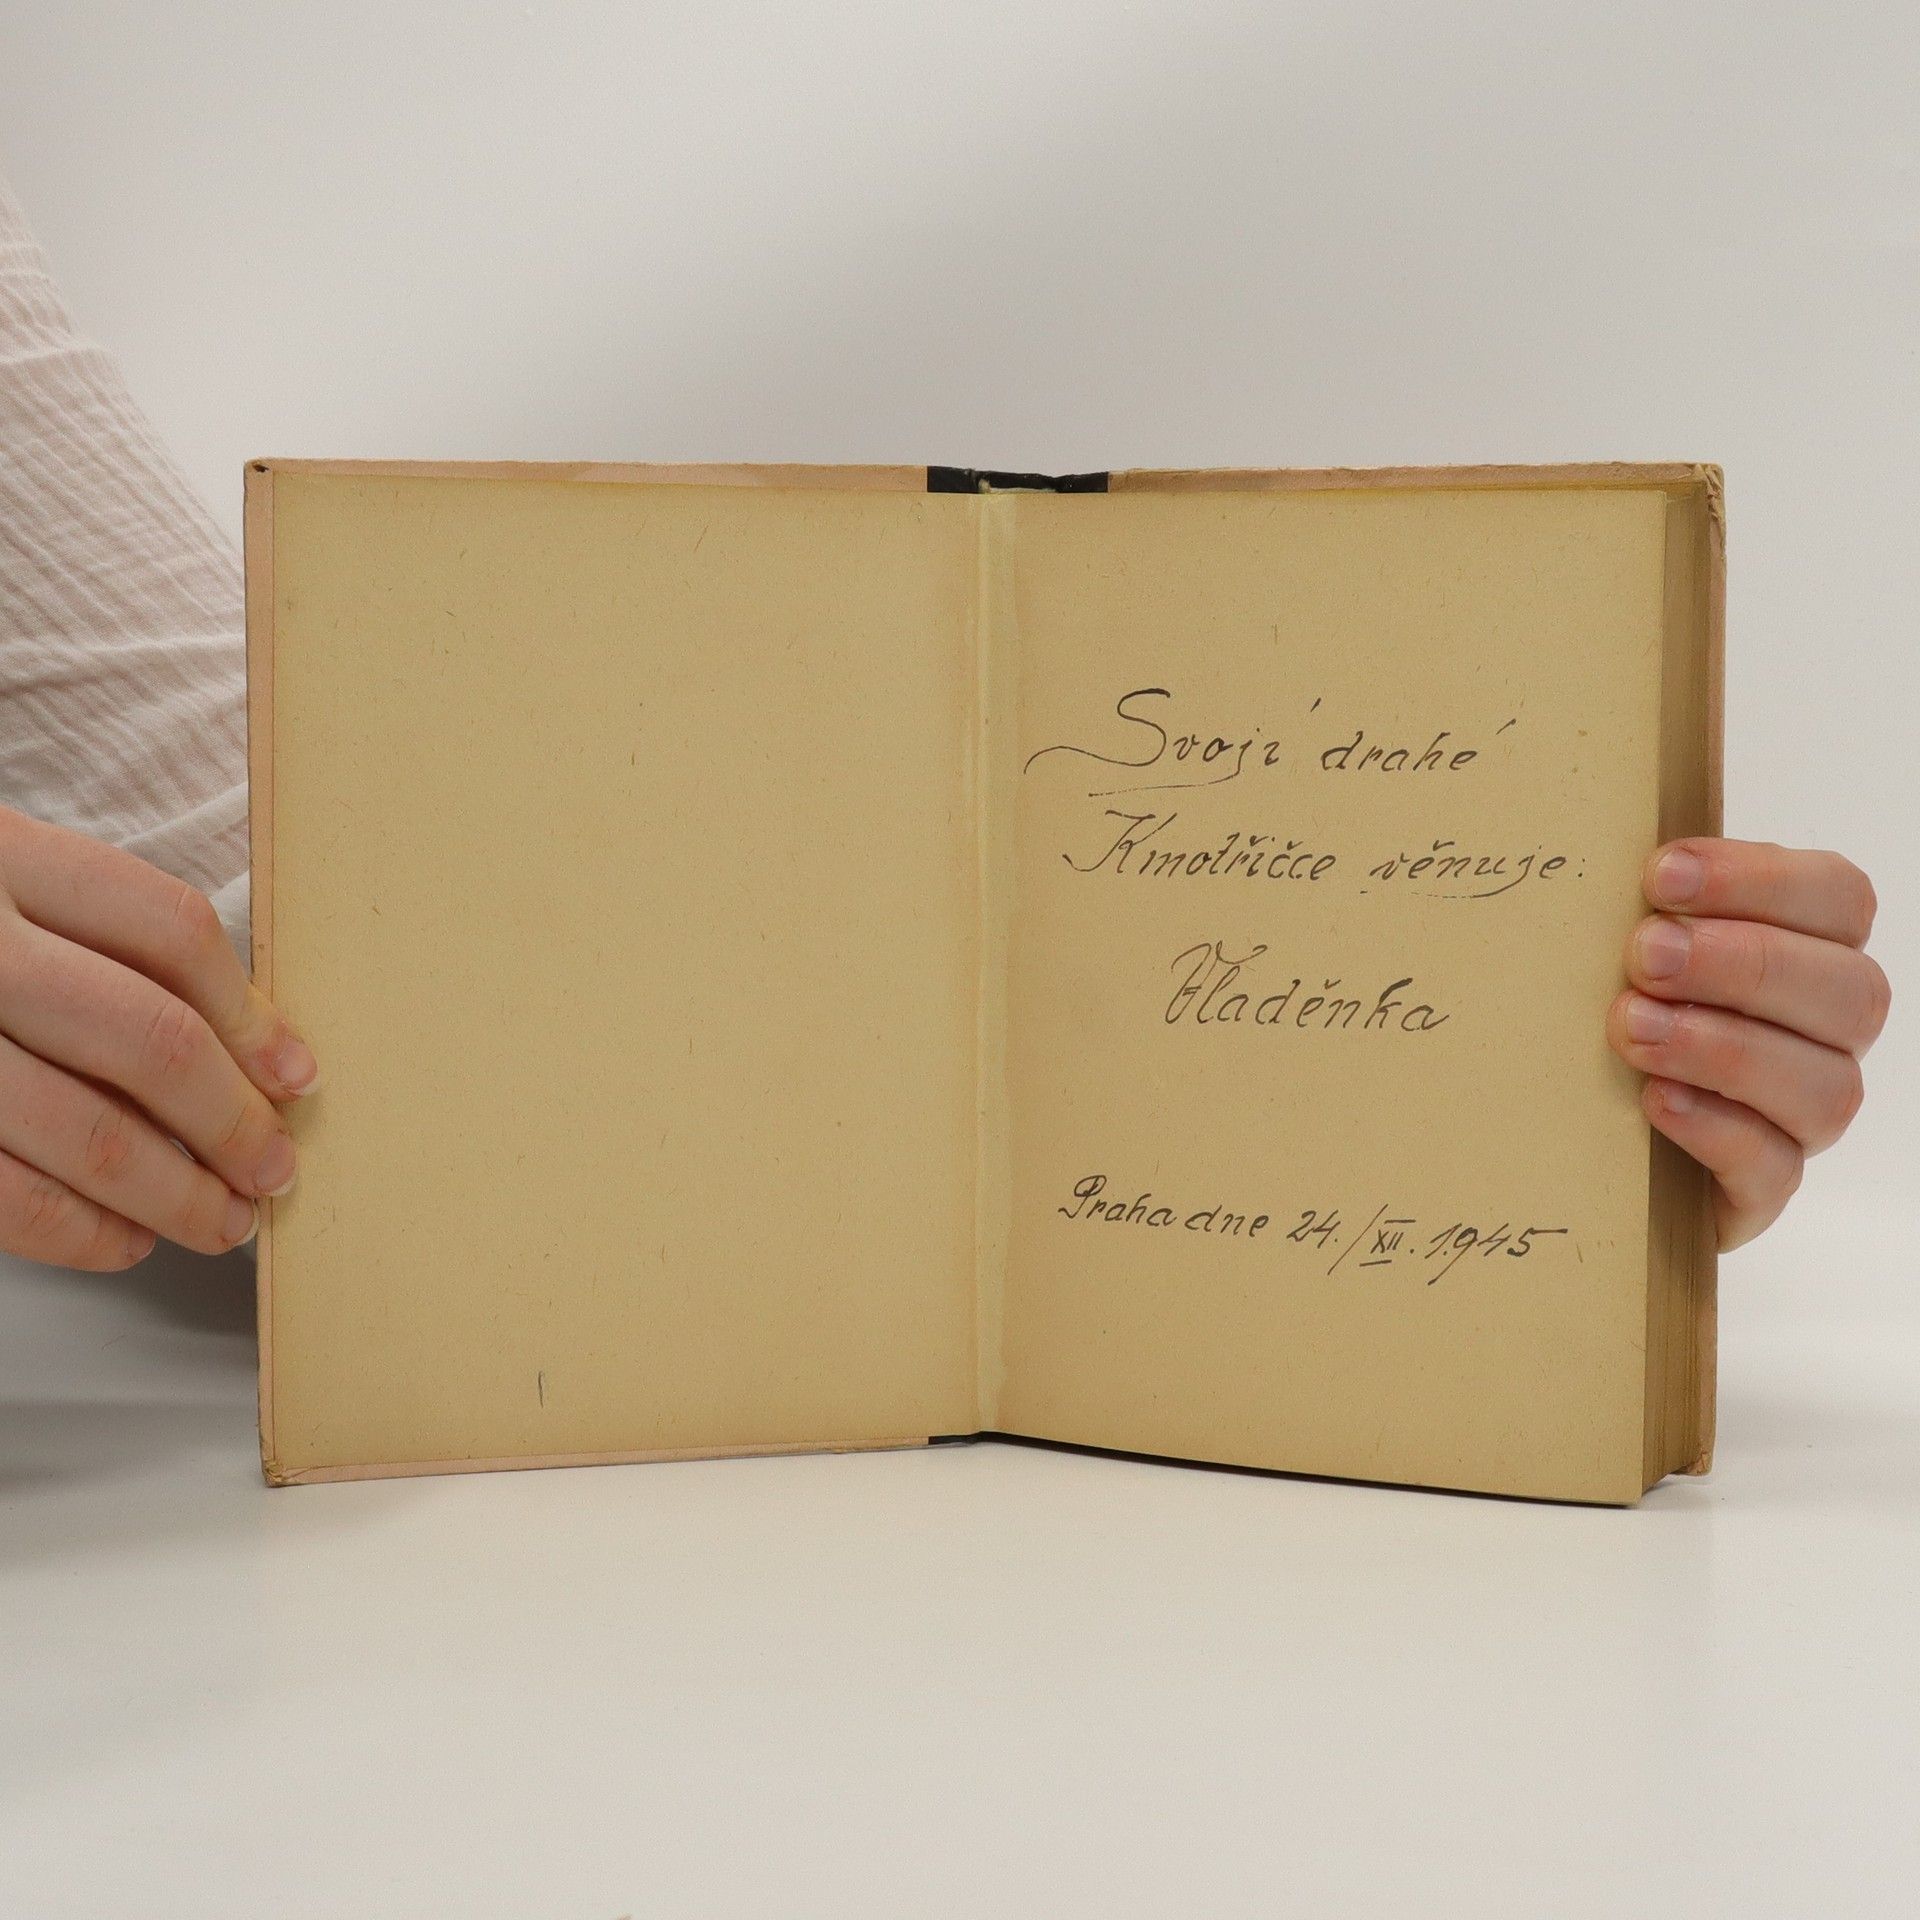 Svojí drahé
Kmotřičce věnuje:
Vladěnka
Praha dne 24./XII. 1945